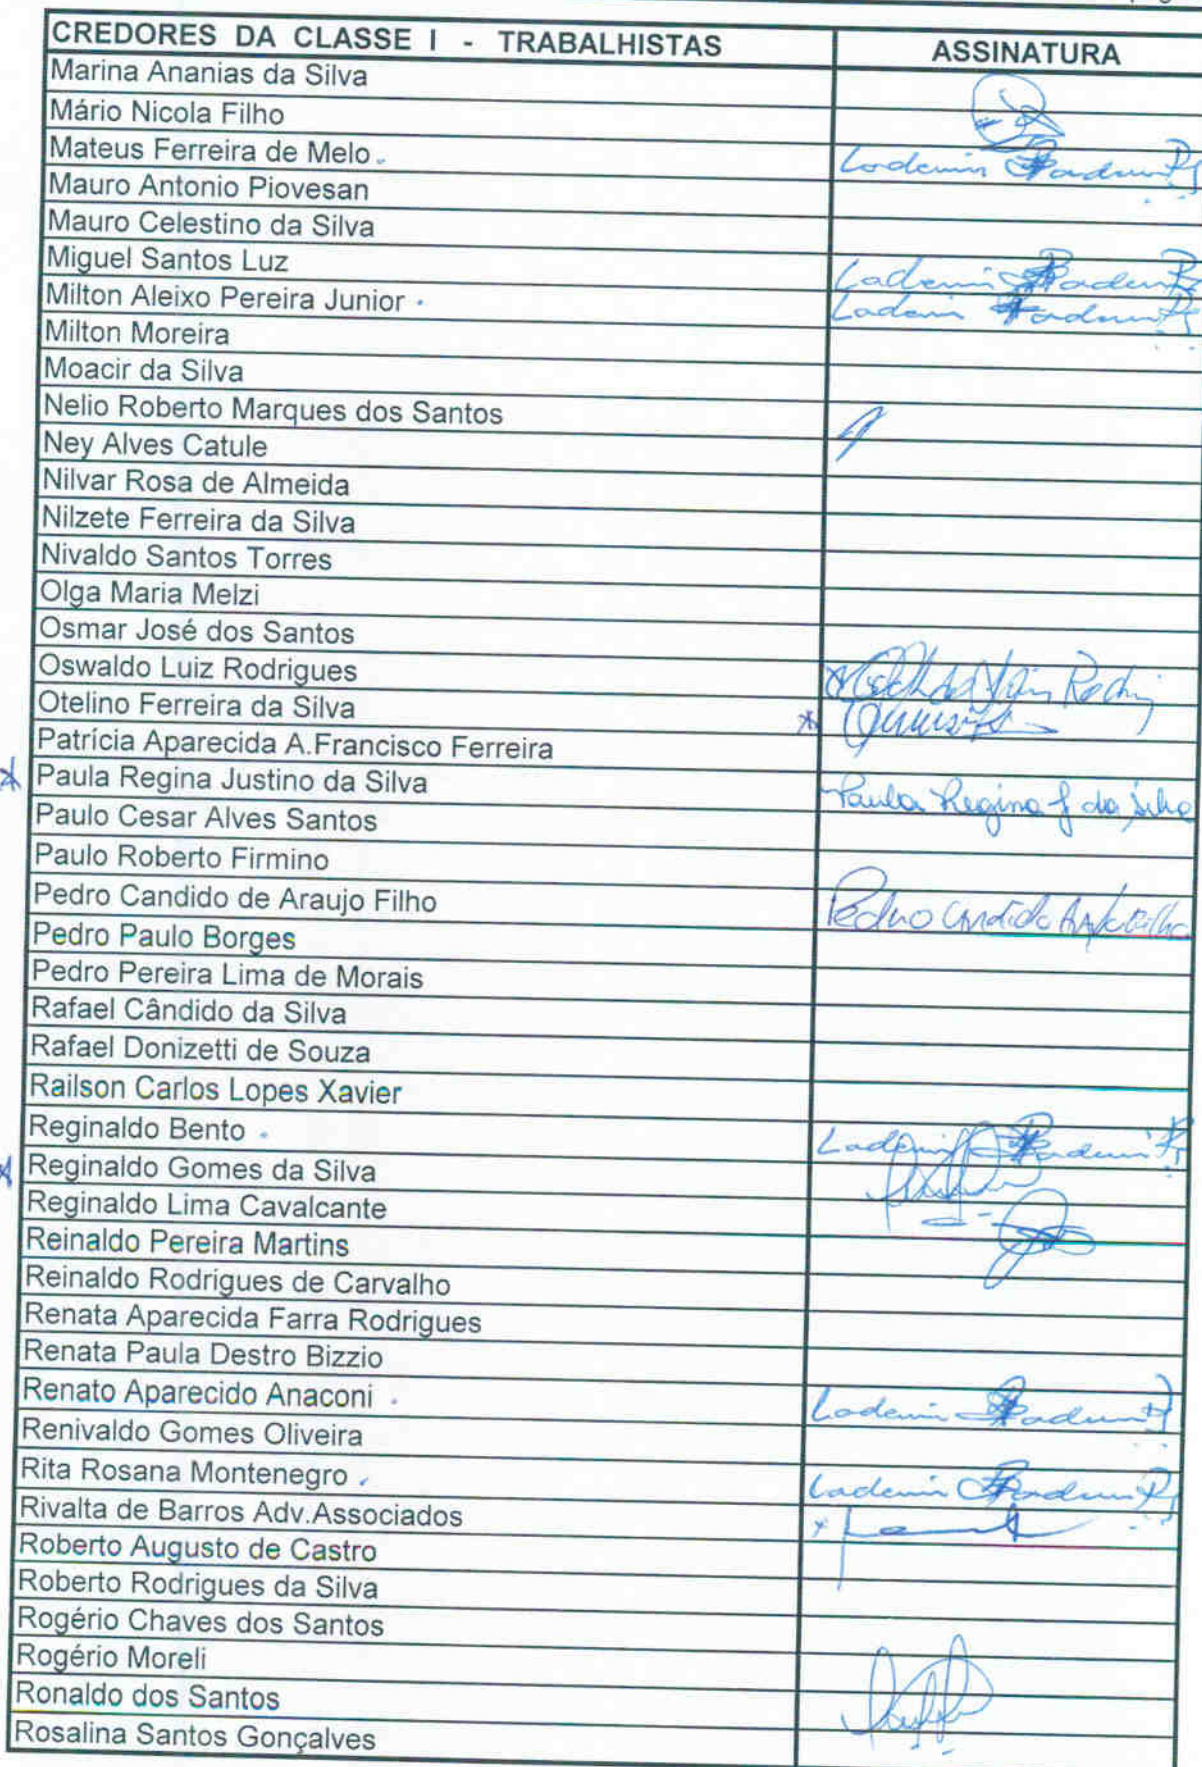 CREDORES DA CLASSE I - TRABALHISTAS ASSINATURA
Marina Ananias da Silva
Mário Nicola Filho
Mateus Ferreira de Melo
Mauro Antonio Piovesan
Mauro Celestino da Silva
Miguel Santos Luz
Milton Aleixo Pereira Junior
Milton Moreira
Moacir da Silva
Nelio Roberto Marques dos Santos
Ney Alves Catule
Nilvar Rosa de Almeida
Nilzete Ferreira da Silva
Nivaldo Santos Torres
Olga Maria Melzi
Osmar José dos Santos
Oswaldo Luiz Rodrigues
Otelino Ferreira da Silva
Patrícia Aparecida A.Francisco Ferreira
Paula Regina Justino da Silva Paula Regina J da Silva
Paulo Cesar Alves Santos
Paulo Roberto Firmino
Pedro Candido de Araujo Filho Pedro Candido
Pedro Paulo Borges
Pedro Pereira Lima de Morais
Rafael Cândido da Silva
Rafael Donizetti de Souza
Railson Carlos Lopes Xavier
Reginaldo Bento
Reginaldo Gomes da Silva
Reginaldo Lima Cavalcante
Reinaldo Pereira Martins
Reinaldo Rodrigues de Carvalho
Renata Aparecida Farra Rodrigues
Renata Paula Destro Bizzio
Renato Aparecido Anaconi
Renivaldo Gomes Oliveira
Rita Rosana Montenegro
Rivalta de Barros Adv.Associados
Roberto Augusto de Castro
Roberto Rodrigues da Silva
Rogério Chaves dos Santos
Rogério Moreli
Ronaldo dos Santos
Rosalina Santos Gonçalves